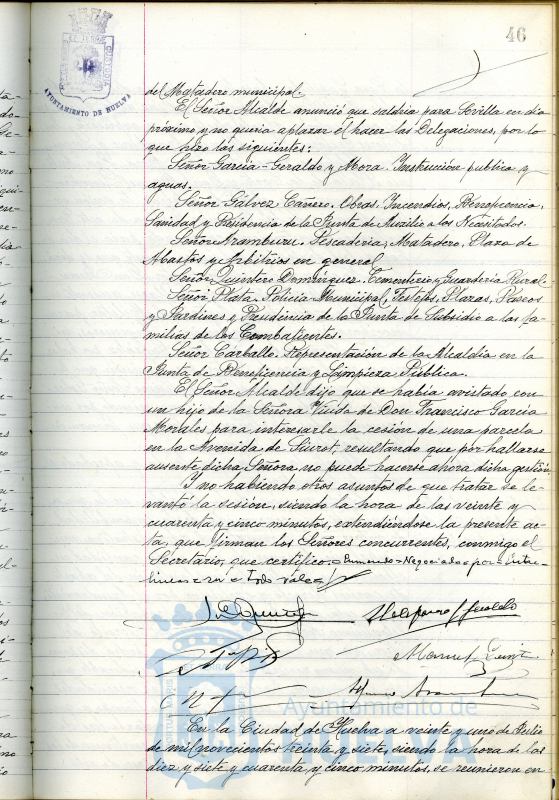 46
AYUNTAMIENTO DE HUELVA
del Matadero municipal.
El Señor Alcalde anunció que saldria para Sevilla en dia
próximo y no queria aplazar el hacer las Delegaciones, por lo
que hizo las siguientes:
Señor Garcia-Geraldo y Mora. Instrucción publica y
aguas.
Señor Gálvez Cañero. Obras, Incendios, Beneficencia,
Sanidad y Presidencia de la Junta de Auxilio a los Necesitados.
Señor Aramburu. Pescaderia, Matadero, Plaza de
Abastos y Arbitrios en general
Señor Quintero Dominguez. Cementerio y Guarderia Rural.
Señor Plata. Policia Municipal, Festejos, Plazas, Paseos
y Jardines y Presidencia de la Junta de Subsidio a las fa
milias de los Combatientes.
Señor Carballo. Representación de la Alcaldia en la
Junta de Beneficencia y Limpieza Publica.
El Señor Alcalde dijo que se habia avistado con
un hijo de la Señora Viuda de Don Francisco Garcia
Morales para interesarle la cesión de una parcela
en la Avenida de Siurot, resultando que por hallarse
ausente dicha Señora no puede hacerse ahora dicha gestión
Y no habiendo otros asuntos de que tratar se le-
vantó la sesión, siendo la hora de las veinte y
cuarenta y cinco minutos, extendiéndose la presente ac
ta, que firman los Señores concurrentes, conmigo el
Secretario, que certifico = Enmendo = Negociado = por = inter
lineas = Todo vale =
Ayuntamiento de
HUELVA
En la Ciudad de Huelva a veinte y uno de Julio
de mil novecientos treinta y siete, siendo la hora de las
diez y siete y cuarenta y cinco minutos, se reunieron en